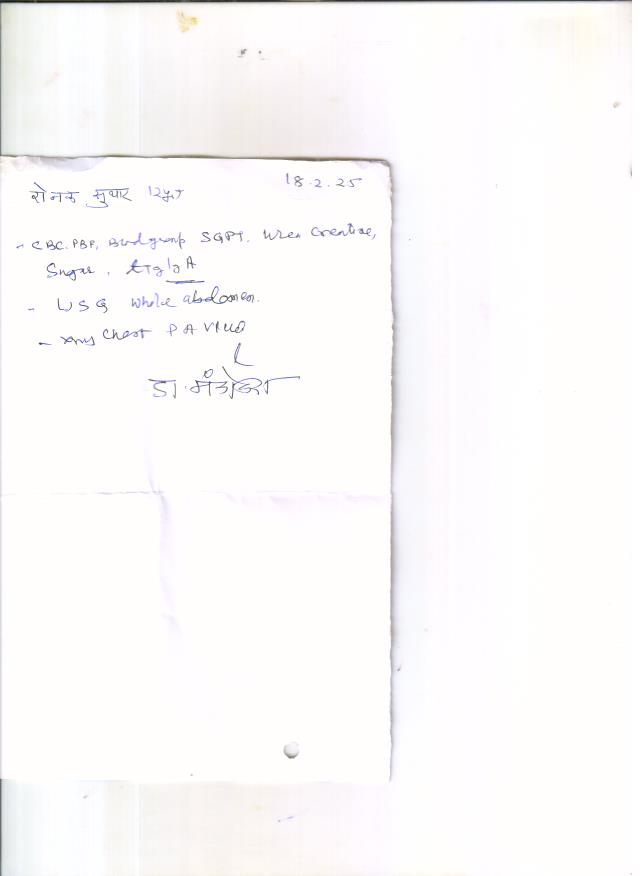 रोनक सुथार 12yr 18.2.25
- CBC. PBF, Blood group SGPT. Urea Creatine,
Sugar. tTg IgA
- USG Whole abdomen.
- xray Chest PA View
डा.